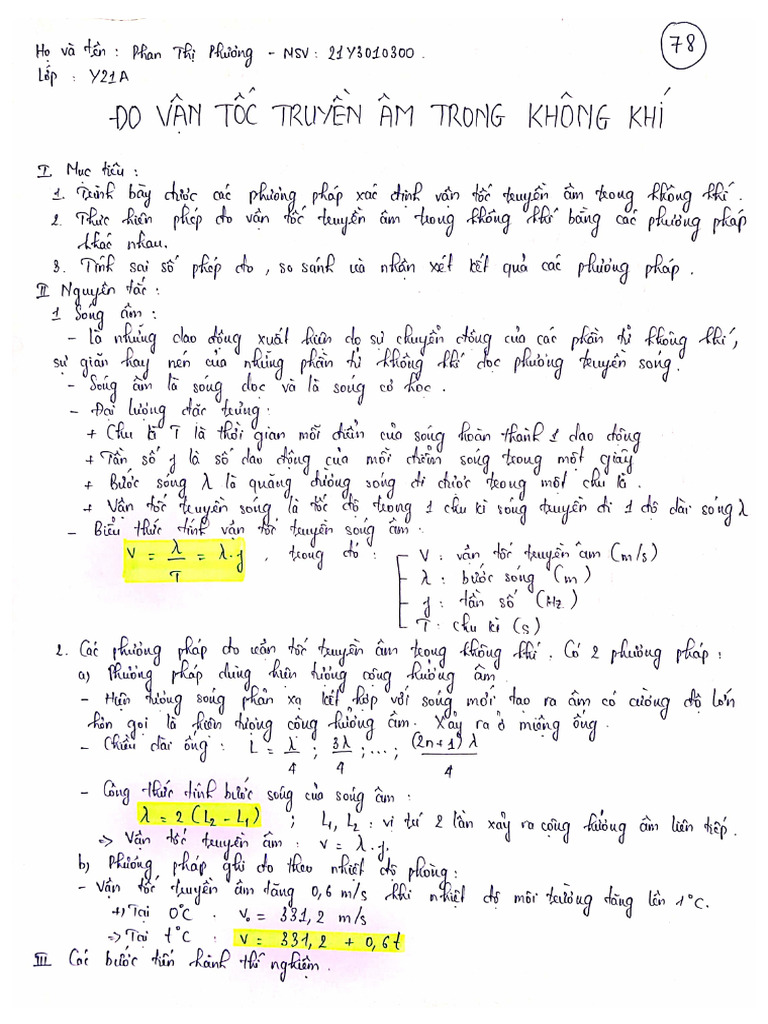 Họ và tên : Phan Thị Phương - MSV : 21Y3010300.
78
Lớp : Y21A
ĐO VẬN TỐC TRUYỀN ÂM TRONG KHÔNG KHÍ
I Mục tiêu :
1. Trình bày được các phương pháp xác định vận tốc truyền âm trong không khí.
2. Thực hiện phép đo vận tốc truyền âm trong không khí bằng các phương pháp
khác nhau.
3. Tính sai số phép đo, so sánh và nhận xét kết quả các phương pháp.
II Nguyên tắc :
1 Sóng âm :
- Là những dao động xuất hiện do sự chuyển động của các phần tử không khí,
sự giãn hay nén của những phần tử không khí dọc phương truyền sóng.
- Sóng âm là sóng dọc và là sóng cơ học.
- Đại lượng đặc trưng :
+ Chu kì T là thời gian mỗi điểm của sóng hoàn thành 1 dao động
+ Tần số f là số dao động của mỗi điểm sóng trong một giây
+ Bước sóng λ là quãng đường sóng đi được trong một chu kì.
+ Vận tốc truyền sóng là tốc độ trong 1 chu kì sóng truyền đi 1 độ dài sóng λ
- Biểu thức tính vận tốc truyền sóng âm :
V = λ/T = λ.f , trong đó : V : vận tốc truyền âm (m/s)
λ : bước sóng (m)
f : tần số (Hz)
T : chu kì (s)
2. Các phương pháp đo vận tốc truyền âm trong không khí. Có 2 phương pháp :
a) Phương pháp dùng hiện tượng cộng hưởng âm
- Hiện tượng sóng phản xạ kết hợp với sóng mới tạo ra âm có cường độ lớn
hơn gọi là hiện tượng cộng hưởng âm. Xảy ra ở miệng ống.
- Chiều dài ống : L = λ/4 ; 3λ/4 ; ... ; (2n+1)λ/4
- Công thức tính bước sóng của sóng âm :
λ = 2 (L₂ - L₁) ; L₁, L₂ : vị trí 2 lần xảy ra cộng hưởng âm liên tiếp.
=> Vận tốc truyền âm : v = λ.f.
b) Phương pháp ghi đo theo nhiệt độ phòng :
- Vận tốc truyền âm tăng 0,6 m/s khi nhiệt độ môi trường tăng lên 1°C.
+) Tại 0°C . v₀ = 331,2 m/s
=> Tại t°C : v = 331,2 + 0,6t
III Các bước tiến hành thí nghiệm.